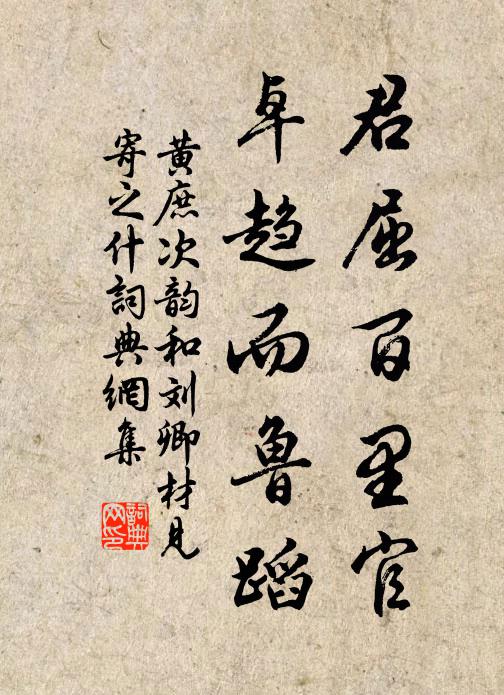 君屈百里官
卓趙而魯蹈
黄庶次韵和刘卿材见
寄之什詞典網集
詞典网印